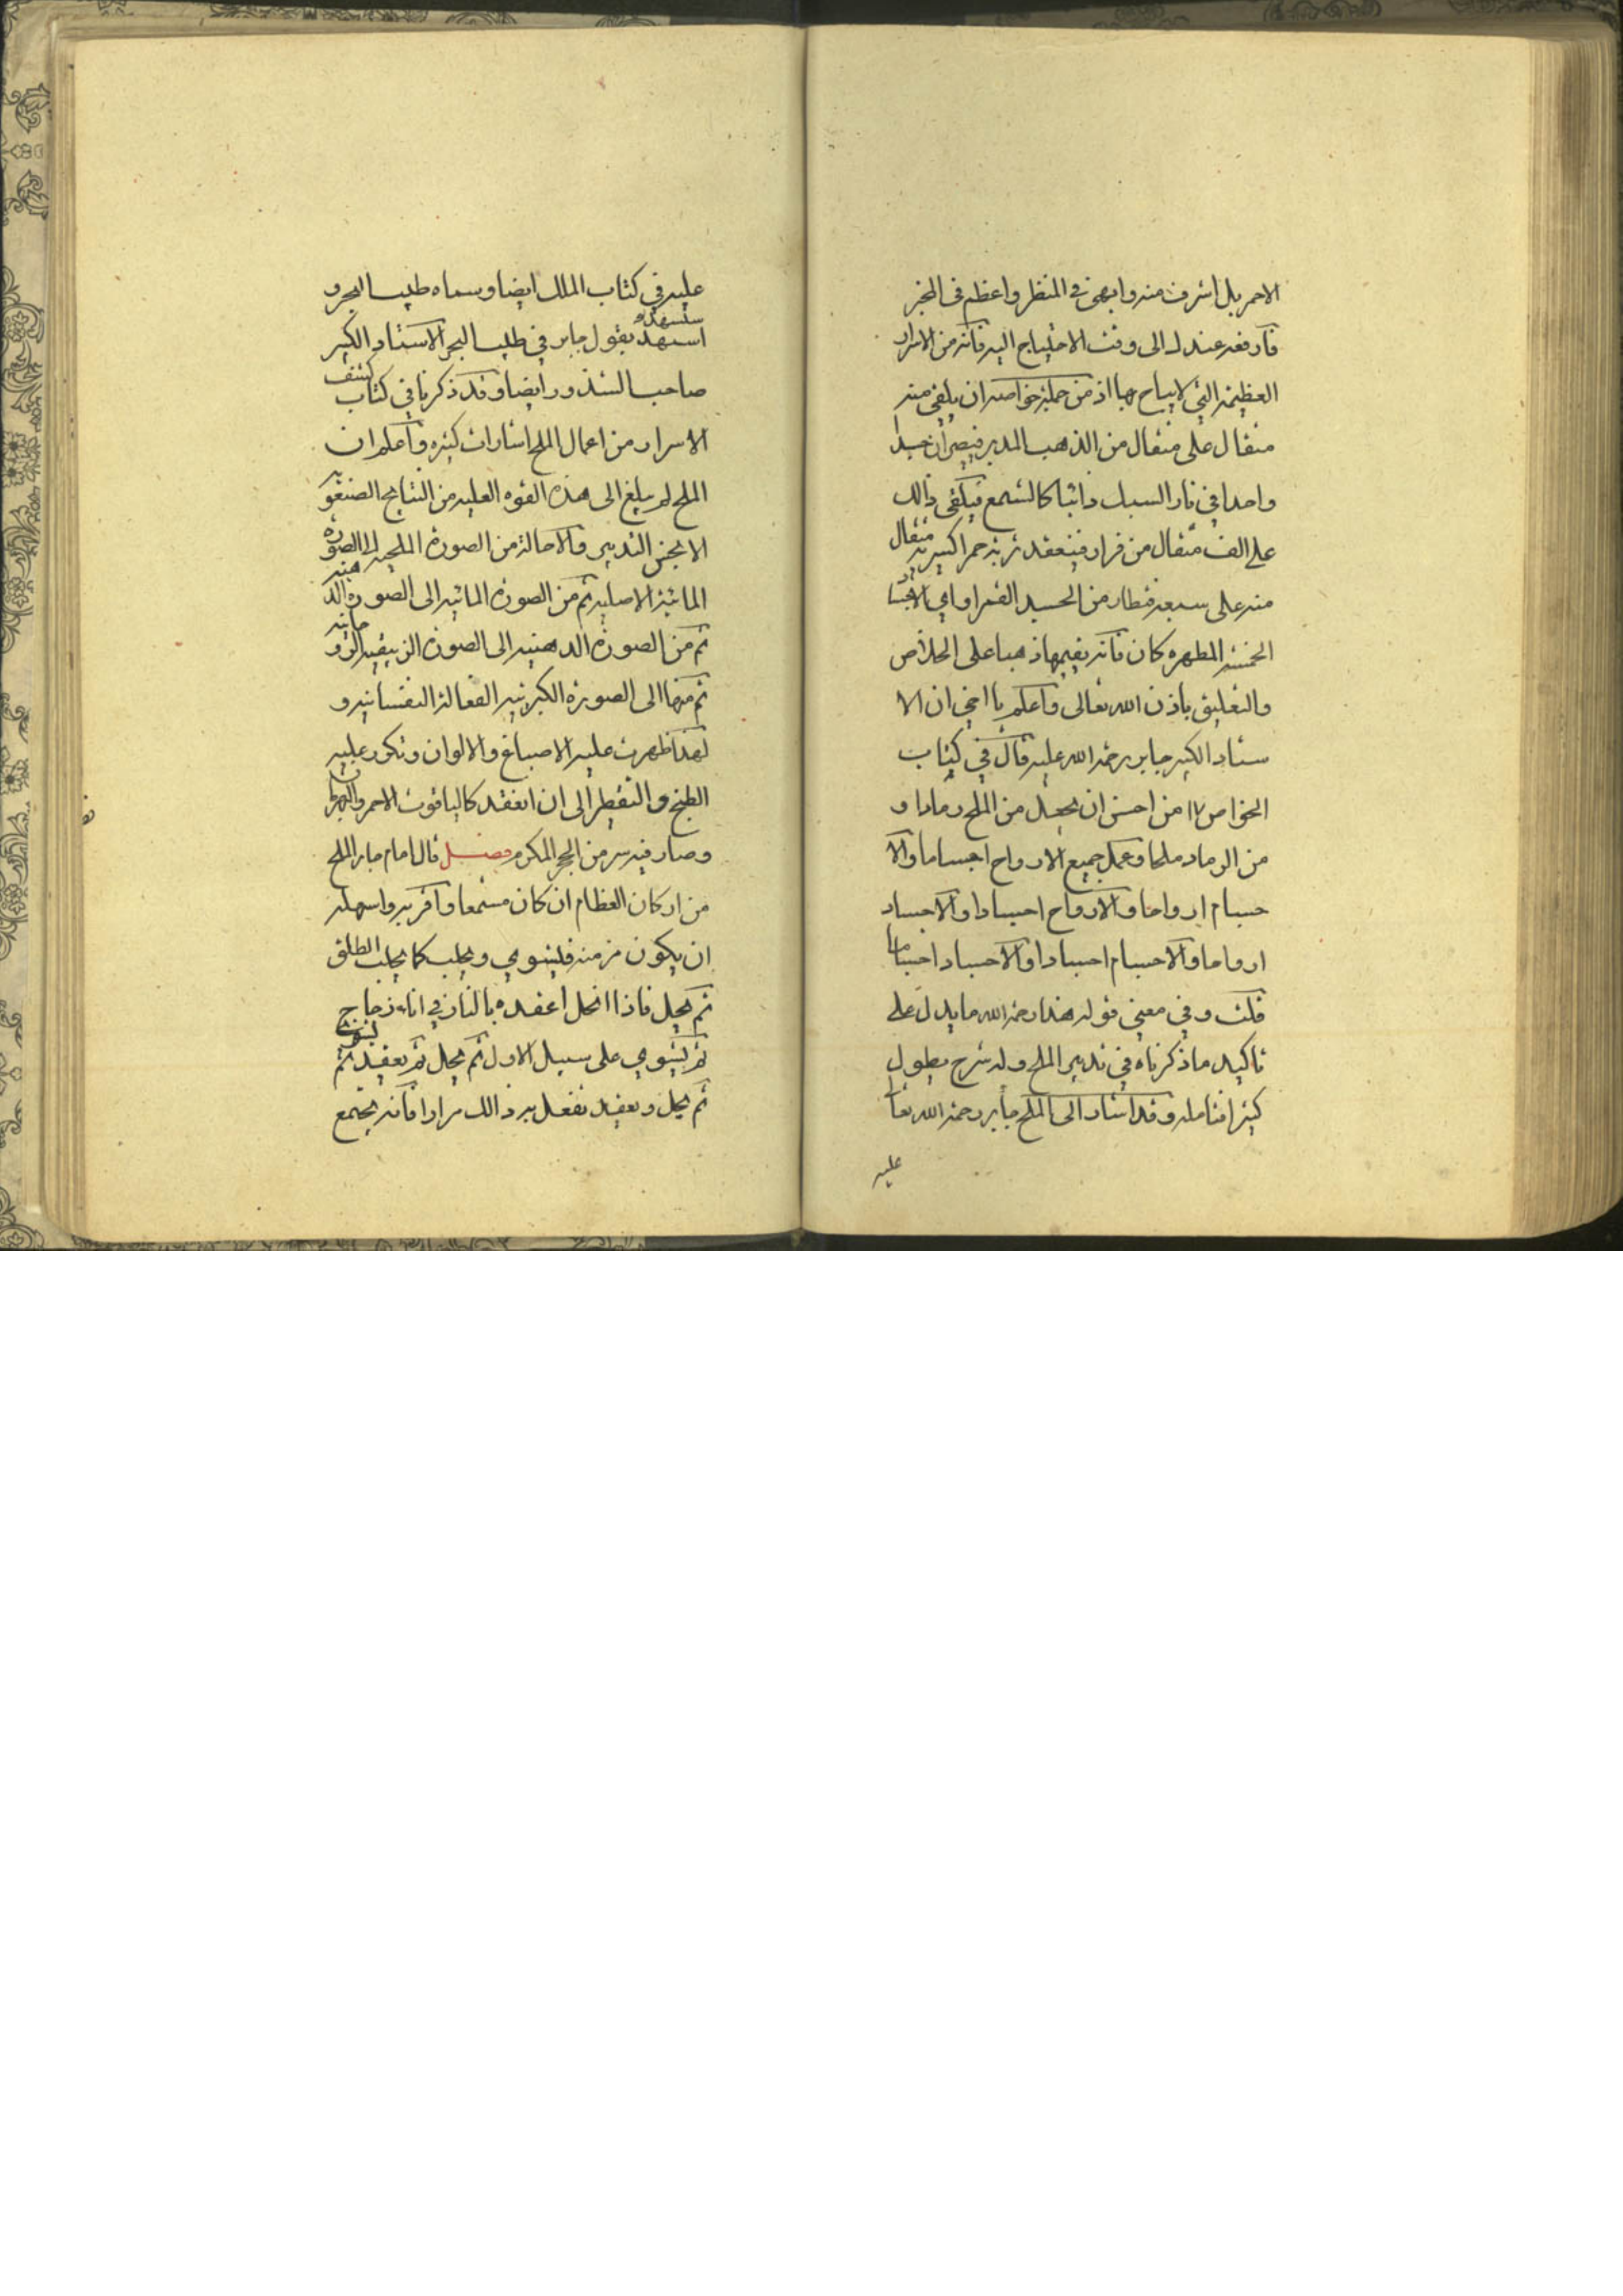 الاحمر بل اشرف منه وابهى في المنظر واعظم في المخبر
فارفعه عندك الى وقت الاحتياج اليه فانه من الاسرار
العظيمة التي لا يباح بها اذ من جملة خواصه ان يلقى منه
مثقال على مثقال من الذهب المدبر فيصيران جسدا
واحدا في نار السبك ذائبا كالشمع فيلقى ذالك
على الف مثقال من فرار فينعقد تربة حمرا اكسيرية مثقال
منه على سبعة قنطار من الجسد القمر او اي الاجساد
الخمسة المطهره كان فانه يقيمها ذهبا على الخلاص
والتعليق باذن الله تعالى واعلم يا اخي ان الا
ستاد الكبير جابر رحمة الله عليه قال في كتاب
الخواص ١٧ من احسن ان يجعل من الملح رمادا و
من الرماد ملحا وعمل جميع الارواح اجساما والا
جسام ارواحا والارواح اجسادا والاجساد
ارواحا والاجسام اجسادا والاجساد اجساما
قلت وفي معنى قوله هذا رحمة الله ما يدل على
تاكيد ما ذكرناه في تدبير الملح وله شرح يطول
كثيرا فتامله وقد اشار الى الملح جابر رحمة الله تعالى
عليه
عليه في كتاب الملك ايضا وسماه طيب البحر و
استهد بقول جابر في طيب البحر الاستاد الكبير
صاحب الشذور ايضا وقد ذكرنا في كتاب كشف
الاسرار من اعمال الملح اشارات كثيره واعلم ان
الملح لم يبلغ الى هذه القوه العليه من النتايج الصنعويه
الا بحسن التدبير والاحالة من الصورة الملحيه الى الصوره
المائية الاصليه ثم من الصورة المائيه الى الصوره الدهنيه
ثم من الصورة الدهنيه الى الصورة الزيبقيه الروحانيه
ثم منها الى الصورة الكبريتيه الفعالة النفسانيه و
لهذا ظهرت عليه الاصباغ والالوان وتكرر عليه
الطبخ والتقطير الى ان انعقد كالياقوت الاحمر والبهرمان
وصار فيه سر من الحجر المكرم فصل قال امام جابر الملح
من اركان العظام ان كان مشمعا واقربه واسهله
ان يكون مزمنه فليشوي ويحلب كما يحلب الطلق
ثم يحل فاذا انحل اعقده بالنار في اناء زجاج
ثم يشوي على سبيل الاول ثم يحل ثم يعقد ثم يشوي
ثم يحل ويعقد تفعل به ذالك مرارا فانه يجتمع